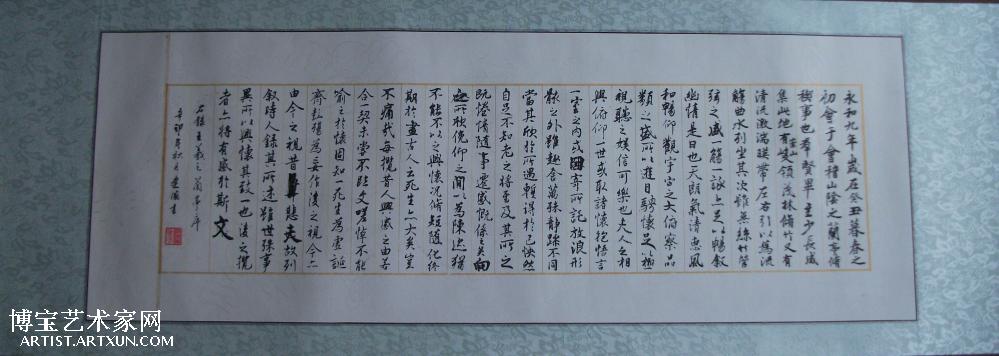 永和九年歲在癸丑暮春之
初會于會稽山陰之蘭亭脩
稧事也羣賢畢至少長咸
集此地有崇山峻領茂林脩竹又有
清流激湍暎帶左右引以為流
觴曲水列坐其次雖無絲竹管
弦之盛一觴一詠上足以暢叙
幽情是日也天朗氣清惠風
和暢仰觀宇宙之大俯察品
類之盛所以遊目騁懷足以極
視聽之娛信可樂也夫人之相
與俯仰一世或取諸懷抱悟言
一室之內或因寄所託放浪形
骸之外雖趣舍萬殊靜躁不同
當其欣於所遇暫得於己怏然
自足不知老之將至及其所之
既惓情隨事遷感慨係之矣向
之所欣俛仰之間以為陳迹猶
不能不以之興懷況脩短隨化終
期於盡古人云死生亦大矣豈
不痛哉每攬昔人興感之由若
合一契未嘗不臨文嗟悼不能
喻之於懷固知一死生為虛誕
齊彭殤為妄作後之視今亦
由今之視昔悲夫故列
敘時人錄其所述雖世殊事
異所以興懷其致一也後之攬
者亦將有感於斯文
右錄王羲之蘭亭序
辛卯年秋
博宝艺术家网
ARTIST.ARTXUN.COM